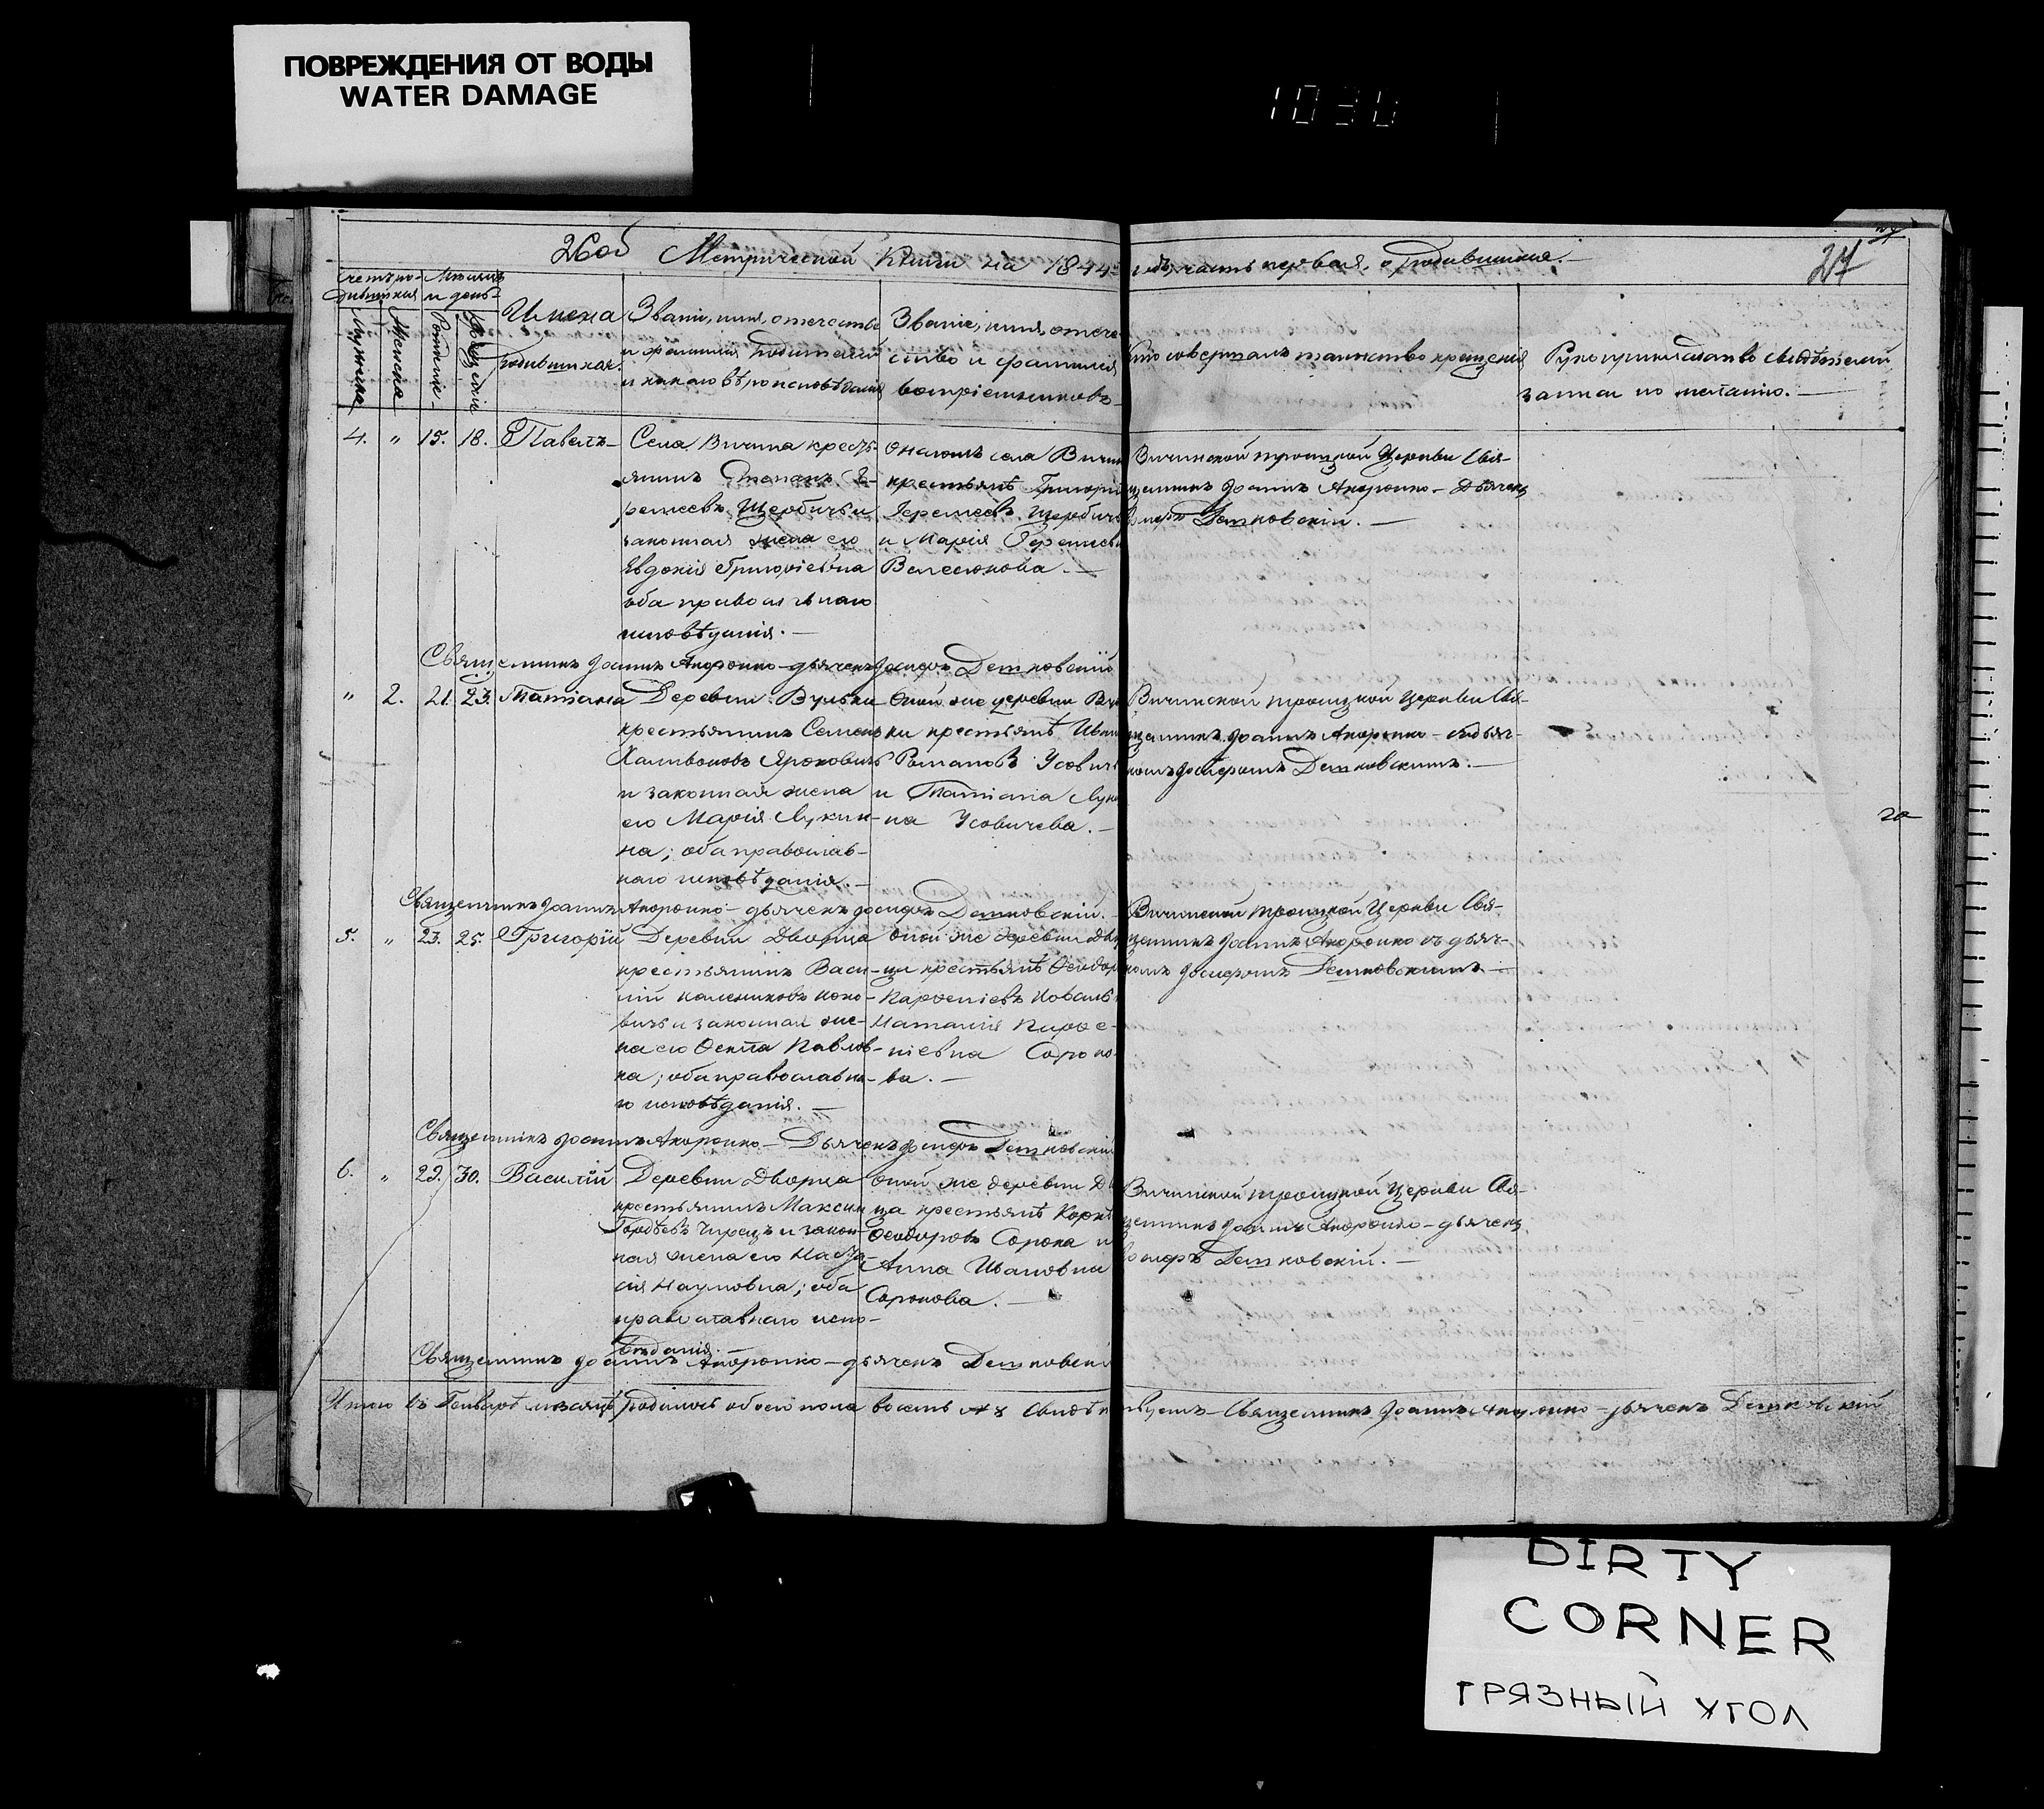 ПОВРЕЖДЕНИЯ ОТ ВОДЫ
WATER DAMAGE
1036
26об Метрической Книги на 1844 годъ, часть первая, о родившихся.
27
Счетъ родившихся
Мѣсяцъ и день
Мужеска
Женска
Рожденіе
Крещенія
Имена родившихся.
Званіе, имя, отечество
и фамилія родителей
и какого вѣроисповѣданія
Званіе, имя, отече-
ство и фамилія
воспріемниковъ
Кто совершалъ таинство крещенія
Рукоприкладство свидѣтелей
записи по желанію.
4. " 15. 18. Павелъ
Села Вичина кресть-
янинъ Степанъ Е-
ремеевъ Щербичъ и
законная жена его
Евдокія Григоріевна
оба православнаго
исповѣданія.
Онагожъ села Вичин
крестьянѣ Григорій
Іеремеевъ Щербичъ
и Марія
Вичинской троицкой Церкви Свя-
щенникъ Іоаннъ Андронко - Дьячекъ
Іосифъ Детковскій.
Священникъ Іоаннъ Андронко - дьячекъ Іосифъ Детковскій
" 2. 21. 23. Татіана
Деревни Вульки
крестьянинъ Семенъ
и законная жена
его Марія Лукин-
на; оба православ-
наго исповѣданія.
Оной же деревни Вуль
ки крестьянѣ Иван
Романовъ Усовичъ
и Татіана Лук
на Усовичева.
Вичинской троицкой Церкви Свя-
щенникъ Іоаннъ Андронко - съ дьяч-
комъ Іосифомъ Детковскимъ.
Священникъ Іоаннъ Андронко - дьячекъ Іосифъ Детковскій.
20
5. " 23. 25. Григорій
Деревни Дворца
крестьянинъ Васи-
лій Калениковъ Коно-
вичъ и законная же-
на его Ѳекла Павлов-
на; оба православна-
го исповѣданія.
Оной же деревни Дв
ца крестьянѣ Ѳеодор
Парѳеніевъ Коваль
Наталія Парѳе-
ніевна Сороко-
ва.
Вичинской троицкой Церкви Свя-
щенникъ Іоаннъ Андронко съ дьяч-
комъ Іосифомъ Детковскимъ
Священникъ Іоаннъ Андронко - Дьячекъ Іосифъ Детковскій
6. " 29. 30. Василій
Деревни Дворца
крестьянинъ Максим
и закон-
ная жена его Наста-
сія Наумовна; оба
православнаго испо-
вѣданія.
Оной же деревни Д
ца крестьянѣ Корн
Ѳеодоровъ Сорока и
Анна Ивановна
Сорокова.
Вичинской троицкой Церкви Свя-
щенникъ Іоаннъ Андронко - дьячекъ
Іосифъ Детковскій.
Священникъ Іоаннъ Андронко - дьячекъ Детковскі
Итого въ Генварѣ мѣсяцѣ родилось обоего пола восемь № 8 Свидѣтельствуетъ - Священникъ Іоаннъ Андронко - дьячекъ Детковскій
DIRTY
CORNER
ГРЯЗНЫЙ УГОЛ